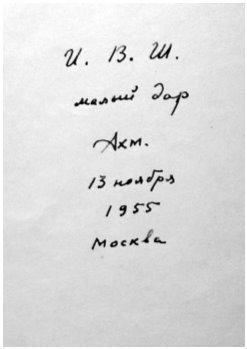 И. В. Ш.
малый дар
Ахм.
13 ноября
1955
Москва